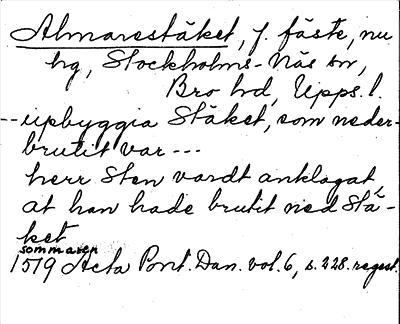 Almarestäket, f. fäste, nu
hg, Stockholms-Näs sn,
Bro hd, Upps. l.
-- upbyggia Stäket, som neder-
brutit var ---
herr Sten vardt anklagat
at han hade brutit ned Stä-
ket
sommaren
1519 Acta Pont. Dan. vol. 6, s. 228. regest.